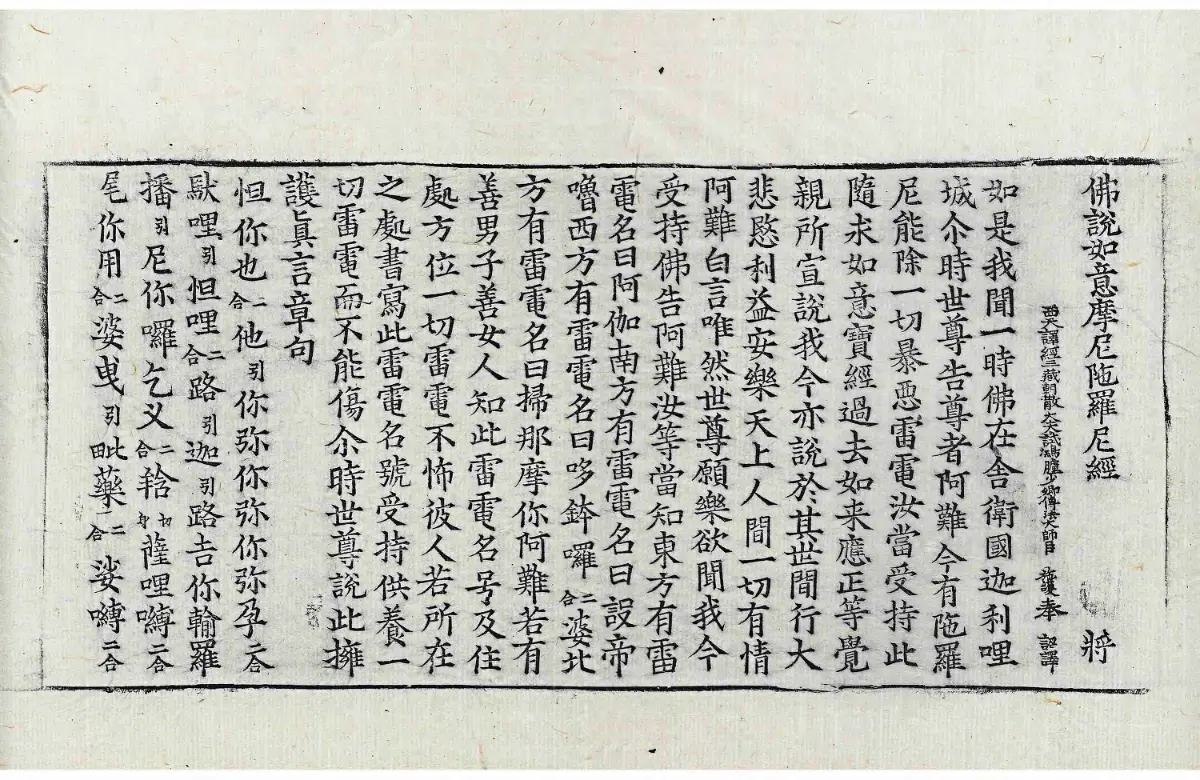 佛說如意摩尼陁羅尼經 將
西天譯經三藏朝散大夫試鴻臚少卿傳法大師臣施護奉 詔譯
如是我聞一時佛在舎衛國迦利哩
城尒時世尊告尊者阿難今有陁羅
尼能除一切暴惡雷電汝當受持此
隨求如意寶經過去如来應正等覺
親所宣說我今亦說於其世間行大
悲愍利益安樂天上人間一切有情
阿難白言唯然世尊願樂欲聞我今
受持佛告阿難汝等當知東方有雷
電名曰阿伽南方有雷電名曰設帝
嚕西方有雷電名曰哆鉢囉二合婆北
方有雷電名曰掃那摩你阿難若有
善男子善女人知此雷電名号及住
處方位一切雷電不怖彼人若所在
之處書寫此雷電名號受持供養一
切雷電而不能傷尒時世尊說此擁
護真言章句
怛你也二合他引你弥你弥你弥孕二合
馱哩引怛哩二合路引迦引路吉你輸羅
播引尼你囉乞叉二合𤚥切身薩哩嚩二合
尾你用二合婆曳引毗藥二合娑嚩二合